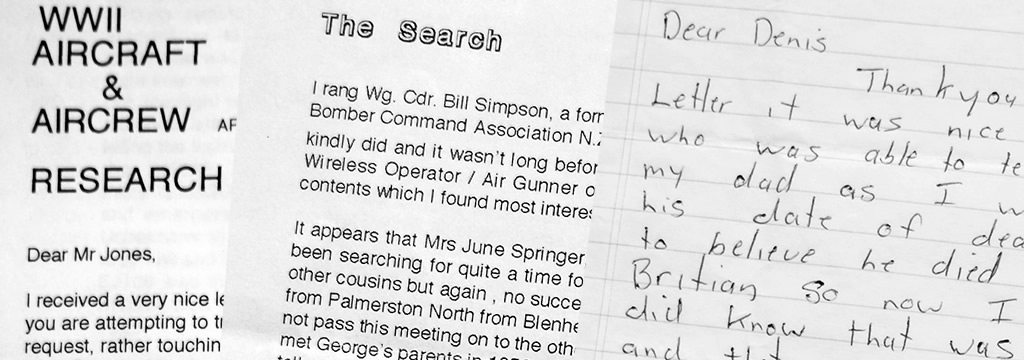 WWII
AIRCRAFT
&
AIRCREW AF
RESEARCH
Dear Mr Jones,
I received a very nice le
you are attempting to tr
request, rather touchin
The Search
I rang Wg. Cdr. Bill Simpson, a forr
Bomber Command Association N.Z
kindly did and it wasn't long befor
Wireless Operator / Air Gunner o
contents which I found most interes
It appears that Mrs June Springer
been searching for quite a time fo
other cousins but again , no succe
from Palmerston North from Blenhe
not pass this meeting on to the oth
met George's parents in
Dear Denis
Thankyou
Letter it was nice
who was able to te
my dad as I w
his date of dea
to believe he died
Britian so now I
did know that was
and that